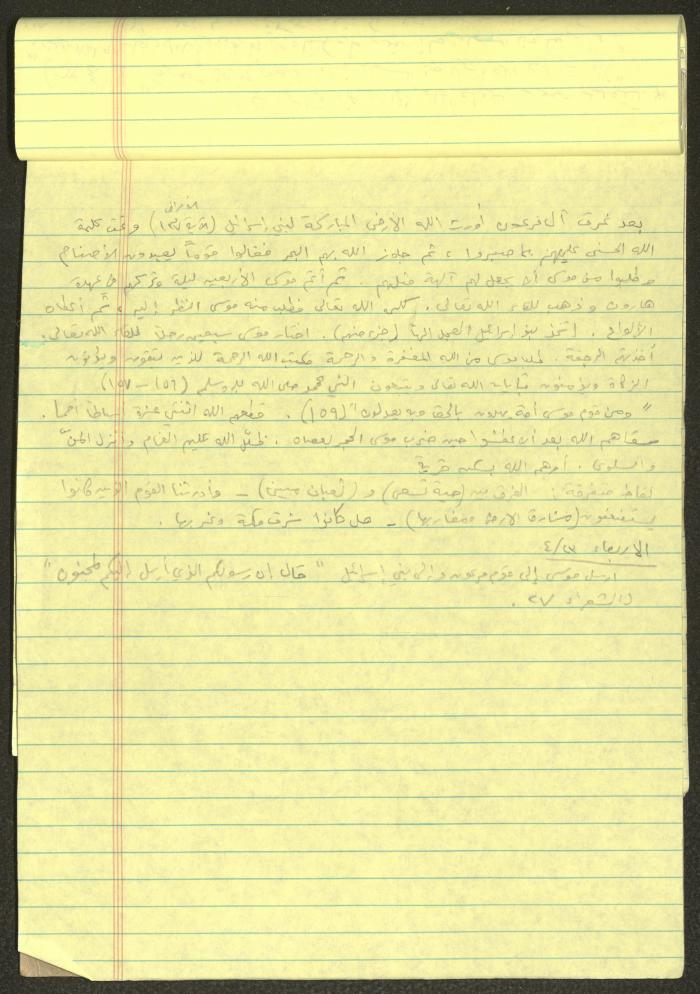 الأعراف
بعد غرق آل فرعون أورث الله الأرض المباركة لبني إسرائيل (الآية ١٣٧) وتمت كلمة
الله الحسنى عليهم بما صبروا ، ثم جاوز الله بهم البحر فقالوا قوماً يعبدون الأصنام
وطلبوا من موسى أن يجعل لهم آلهة مثلهم . ثم أتم موسى الأربعين ليلة وتركهم في عهدة
هارون وذهب للقاء الله تعالى . كلم الله تعالى فطلب منه موسى النظر إليه ، ثم أعطاه
الألواح . اتخذ بنو إسرائيل العجل إلهاً (جزء منهم) . اختار موسى سبعين رجلاً للقاء الله تعالى .
أخذتهم الرجفة . طلب موسى من الله المغفرة والرحمة فكتب الله الرحمة للذين يتقون ويؤتون
الزكاة ويؤمنون بآيات الله تعالى ويتبعون النبي محمد صلى الله عليه وسلم (١٥٦ – ١٥٧)
"ومن قوم موسى أمة يهدون بالحق وبه يعدلون" (١٥٩) . قطعهم الله اثنتي عشرة أسباطاً أمماً .
سقاهم الله بعد أن عطشوا حين ضرب موسى الحجر بعصاه . ظلل الله عليهم الغمام وأنزل المنّ
والسلوى . أمرهم الله بسكنى قرية
نقاط متفرقة : الفرق بين (حية تسعى) و (ثعبان مبين) – وأورثنا القوم الذين كانوا
يستضعفون (مشارق الأرض ومغاربها) – هل كانوا شرق مكة وغربها .
الأربعاء ٤/٢٣
أرسل موسى إلى قوم فرعون وإلى بني إسرائيل "قال إن رسولكم الذي أرسل إليكم لمجنون"
الشعراء ٢٧ .